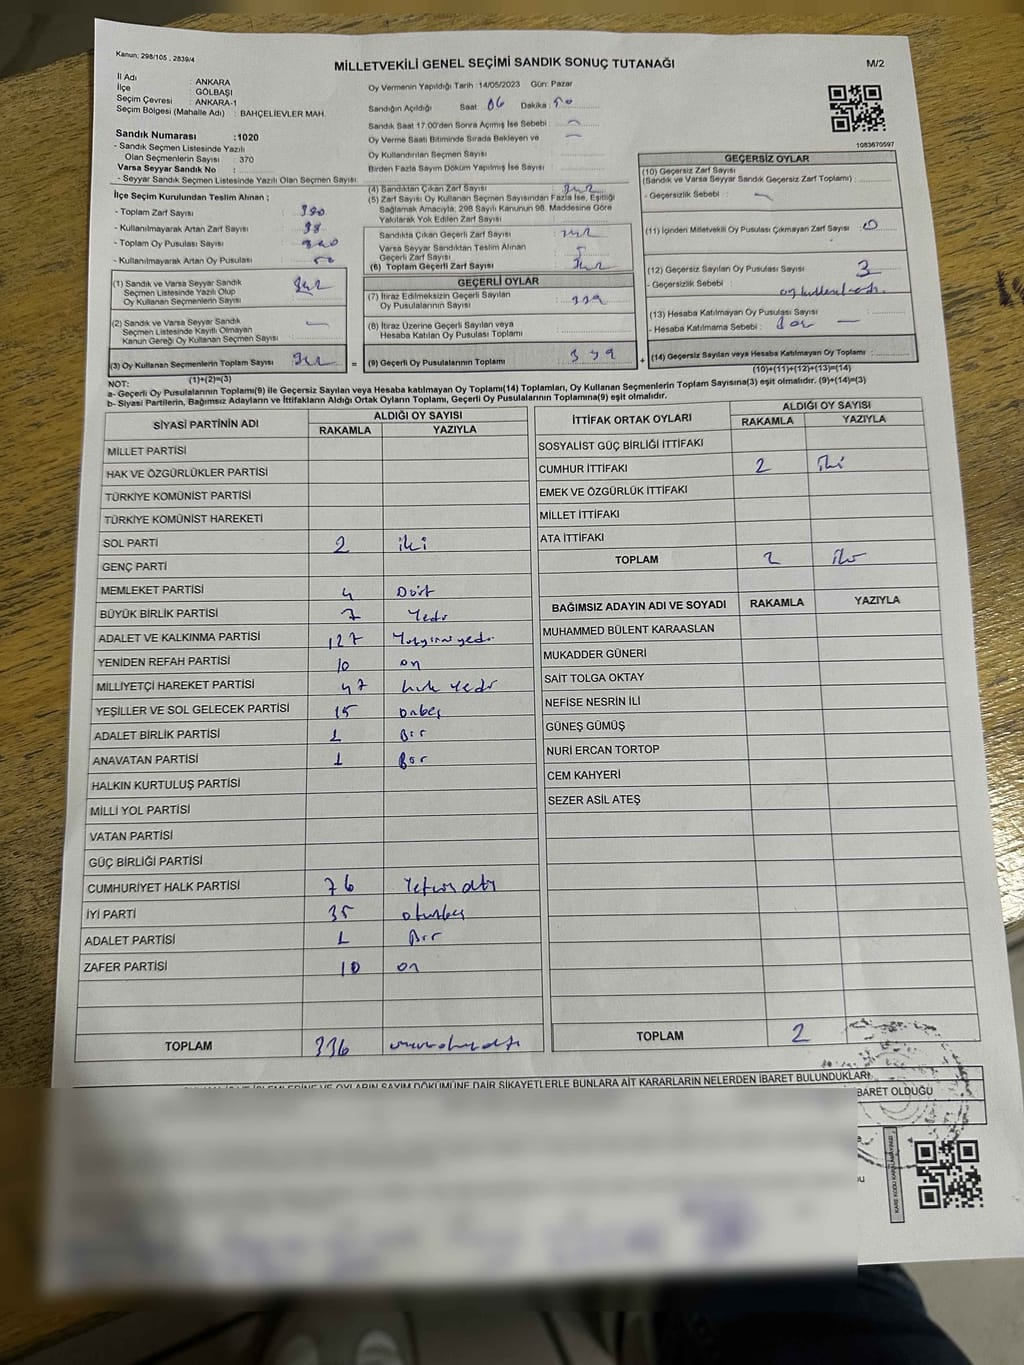 Kanun; 298/105 , 2839/4
MİLLETVEKİLİ GENEL SEÇİMİ SANDIK SONUÇ TUTANAĞI
M/2
İl Adı : ANKARA
İlçe : GÖLBAŞI
Seçim Çevresi : ANKARA-1
Seçim Bölgesi (Mahalle Adı) : BAHÇELİEVLER MAH.
Sandık Numarası :1020
- Sandık Seçmen Listesinde Yazılı
Olan Seçmenlerin Sayısı : 370
Varsa Seyyar Sandık No :
- Seyyar Sandık Seçmen Listesinde Yazılı Olan Seçmen Sayısı:
Oy Vermenin Yapıldığı Tarih :14/05/2023 Gün: Pazar
Sandığın Açıldığı Saat 06 Dakika
Sandık Saat 17.00'den Sonra Açımış İse Sebebi :
Oy Verme Saati Bitiminde Sırada Bekleyen ve
Oy Kullandırılan Seçmen Sayısı :
Birden Fazla Sayım Döküm Yapılmış İse Sayısı :
1083670597
İlçe Seçim Kurulundan Teslim Alınan ;
- Toplam Zarf Sayısı : 380
- Kullanılmayarak Artan Zarf Sayısı : 38
- Toplam Oy Pusulası Sayısı :
- Kullanılmayarak Artan Oy Pusulası :
(1) Sandık ve Varsa Seyyar Sandık
Seçmen Listesinde Yazılı Olup
Oy Kullanan Seçmenlerin Sayısı : 342
(2) Sandık ve Varsa Seyyar Sandık
Seçmen Listesinde Kayıtlı Olmayan
Kanun Gereği Oy Kullanan Seçmen Sayısı :
(3) Oy Kullanan Seçmenlerin Toplam Sayısı 342
(1)+(2)=(3)
(4) Sandıktan Çıkan Zarf Sayısı : 342
(5) Zarf Sayısı Oy Kullanan Seçmen Sayısından Fazla İse, Eşitliği
Sağlamak Amacıyla, 298 Sayılı Kanunun 98. Maddesine Göre
Yakılarak Yok Edilen Zarf Sayısı :
Sandıkta Çıkan Geçerli Zarf Sayısı : 342
Varsa Seyyar Sandıktan Teslim Alınan
Geçerli Zarf Sayısı :
(6) Toplam Geçerli Zarf Sayısı 342
GEÇERLİ OYLAR
(7) İtiraz Edilmeksizin Geçerli Sayılan
Oy Pusulalarının Sayısı : 339
(8) İtiraz Üzerine Geçerli Sayılan veya
Hesaba Katılan Oy Pusulası Toplamı :
= (9) Geçerli Oy Pusulalarının Toplamı : 339
GEÇERSİZ OYLAR
(10) Geçersiz Zarf Sayısı
(Sandık ve Varsa Seyyar Sandık Geçersiz Zarf Toplamı) :
- Geçersizlik Sebebi :
(11) İçinden Milletvekili Oy Pusulası Çıkmayan Zarf Sayısı : 0
(12) Geçersiz Sayılan Oy Pusulası Sayısı : 3
- Geçersizlik Sebebi :
(13) Hesaba Katılmayan Oy Pusulası Sayısı :
- Hesaba Katılmama Sebebi :
+ (14) Geçersiz Sayılan veya Hesaba Katılmayan Oy Toplamı :
(10)+(11)+(12)+(13)=(14)
NOT:
a- Geçerli Oy Pusulalarının Toplamı(9) ile Geçersiz Sayılan veya Hesaba katılmayan Oy Toplamı(14) Toplamları, Oy Kullanan Seçmenlerin Toplam Sayısına(3) eşit olmalıdır. (9)+(14)=(3)
b- Siyasi Partilerin, Bağımsız Adayların ve İttifakların Aldığı Ortak Oyların Toplamı, Geçerli Oy Pusulalarının Toplamına(9) eşit olmalıdır.
SİYASİ PARTİNİN ADI ALDIĞI OY SAYISI
RAKAMLA YAZIYLA
MİLLET PARTİSİ
HAK VE ÖZGÜRLÜKLER PARTİSİ
TÜRKİYE KOMÜNİST PARTİSİ
TÜRKİYE KOMÜNİST HAREKETİ
SOL PARTİ 2 iki
GENÇ PARTİ
MEMLEKET PARTİSİ 4 Dört
BÜYÜK BİRLİK PARTİSİ 7 Yedi
ADALET VE KALKINMA PARTİSİ 127 Yüzyirmiyedi
YENİDEN REFAH PARTİSİ 10 on
MİLLİYETÇİ HAREKET PARTİSİ 47 kırk Yedi
YEŞİLLER VE SOL GELECEK PARTİSİ 15 onbeş
ADALET BİRLİK PARTİSİ 1 Bir
ANAVATAN PARTİSİ 1 Bir
HALKIN KURTULUŞ PARTİSİ
MİLLİ YOL PARTİSİ
VATAN PARTİSİ
GÜÇ BİRLİĞİ PARTİSİ
CUMHURİYET HALK PARTİSİ 76 Yetmişaltı
İYİ PARTİ 35 otuzbeş
ADALET PARTİSİ 1 Bir
ZAFER PARTİSİ 10 on
TOPLAM 336
İTTİFAK ORTAK OYLARI ALDIĞI OY SAYISI
RAKAMLA YAZIYLA
SOSYALİST GÜÇ BİRLİĞİ İTTİFAKI
CUMHUR İTTİFAKI 2 iki
EMEK VE ÖZGÜRLÜK İTTİFAKI
MİLLET İTTİFAKI
ATA İTTİFAKI
TOPLAM 2 iki
BAĞIMSIZ ADAYIN ADI VE SOYADI RAKAMLA YAZIYLA
MUHAMMED BÜLENT KARAASLAN
MUKADDER GÜNERİ
SAİT TOLGA OKTAY
NEFİSE NESRİN İLİ
GÜNEŞ GÜMÜŞ
NURİ ERCAN TORTOP
CEM KAHYERİ
SEZER ASİL ATEŞ
TOPLAM 2
OYLARIN SAYIM DÖKÜMÜNE DAİR ŞİKAYETLERLE BUNLARA AİT KARARLARIN NELERDEN İBARET BULUNDUKLARI
BARET OLDUĞU